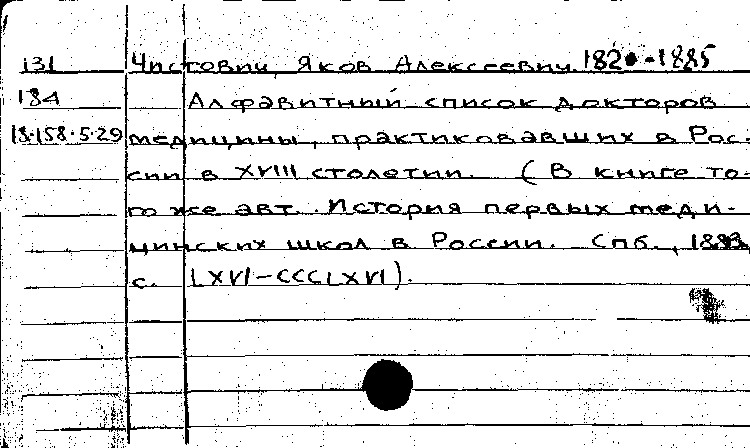 131 Чистович, Яков Алексеевич. 1820-1885
184 Алфавитный список докторов
18.158.5.29 медицины, практиковавших в Рос-
сии в XVIII столетии. (В книге то-
го же авт. История первых меди-
цинских школ в России. Спб., 1883,
с. LXVI-CCCLXVI).